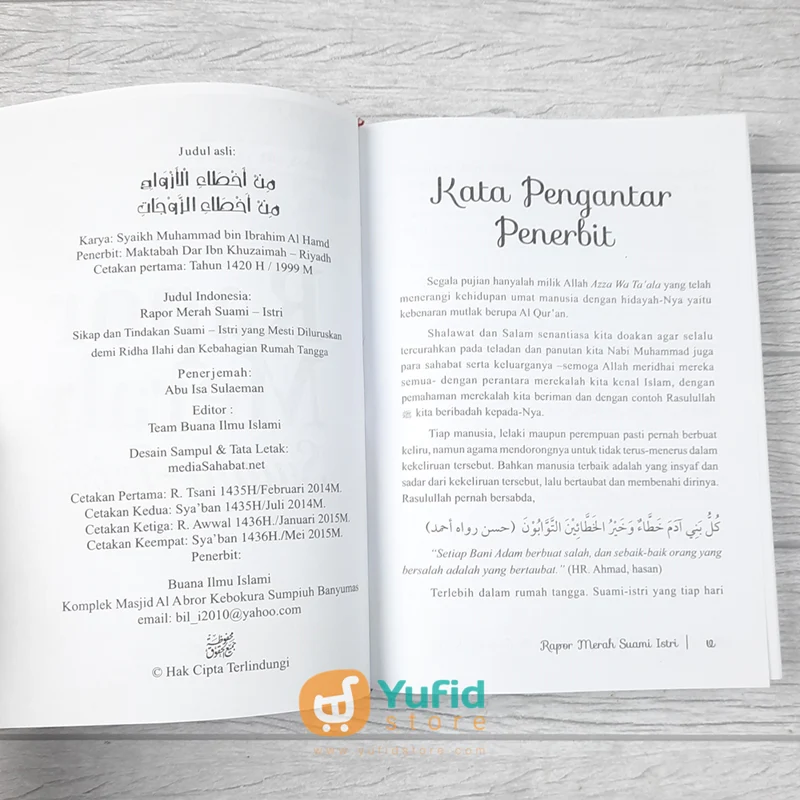 Judul asli:
مِنْ أَخْطَاءِ الْأَزْوَاجِ
مِنْ أَخْطَاءِ الزَّوْجَاتِ
Karya: Syaikh Muhammad bin Ibrahim Al Hamd
Penerbit: Maktabah Dar Ibn Khuzaimah – Riyadh
Cetakan pertama: Tahun 1420 H / 1999 M
Judul Indonesia:
Rapor Merah Suami – Istri
Sikap dan Tindakan Suami – Istri yang Mesti Diluruskan
demi Ridha Ilahi dan Kebahagian Rumah Tangga
Penerjemah:
Abu Isa Sulaeman
Editor :
Team Buana Ilmu Islami
Desain Sampul & Tata Letak:
mediaSahabat.net
Cetakan Pertama: R. Tsani 1435H/Februari 2014M.
Cetakan Kedua: Sya'ban 1435H/Juli 2014M.
Cetakan Ketiga: R. Awwal 1436H./Januari 2015M.
Cetakan Keempat: Sya'ban 1436H./Mei 2015M.
Penerbit:
Buana Ilmu Islami
Komplek Masjid Al Abror Kebokura Sumpiuh Banyumas
email: bil_i2010@yahoo.com
جميع الحقوق محفوظة
© Hak Cipta Terlindungi
Kata Pengantar
Penerbit
Segala pujian hanyalah milik Allah Azza Wa Ta'ala yang telah
menerangi kehidupan umat manusia dengan hidayah-Nya yaitu
kebenaran mutlak berupa Al Qur'an.
Shalawat dan Salam senantiasa kita doakan agar selalu
tercurahkan pada teladan dan panutan kita Nabi Muhammad juga
para sahabat serta keluarganya –semoga Allah meridhai mereka
semua- dengan perantara merekalah kita kenal Islam, dengan
pemahaman merekalah kita beriman dan dengan contoh Rasulullah
ﷺ kita beribadah kepada-Nya.
Tiap manusia, lelaki maupun perempuan pasti pernah berbuat
keliru, namun agama mendorongnya untuk tidak terus-menerus dalam
kekeliruan tersebut. Bahkan manusia terbaik adalah yang insyaf dan
sadar dari kekeliruan tersebut, lalu bertaubat dan membenahi dirinya.
Rasulullah pernah bersabda,
كُلُّ بَنِي آدَمَ خَطَّاءٌ وَخَيْرُ الْخَطَّائِيْنَ التَّوَّابُوْنَ (حسن رواه أحمد)
"Setiap Bani Adam berbuat salah, dan sebaik-baik orang yang
bersalah adalah yang bertaubat." (HR. Ahmad, hasan)
Terlebih dalam rumah tangga. Suami-istri yang tiap hari
Rapor Merah Suami Istri |
Yufid
store
www.yufidstore.com